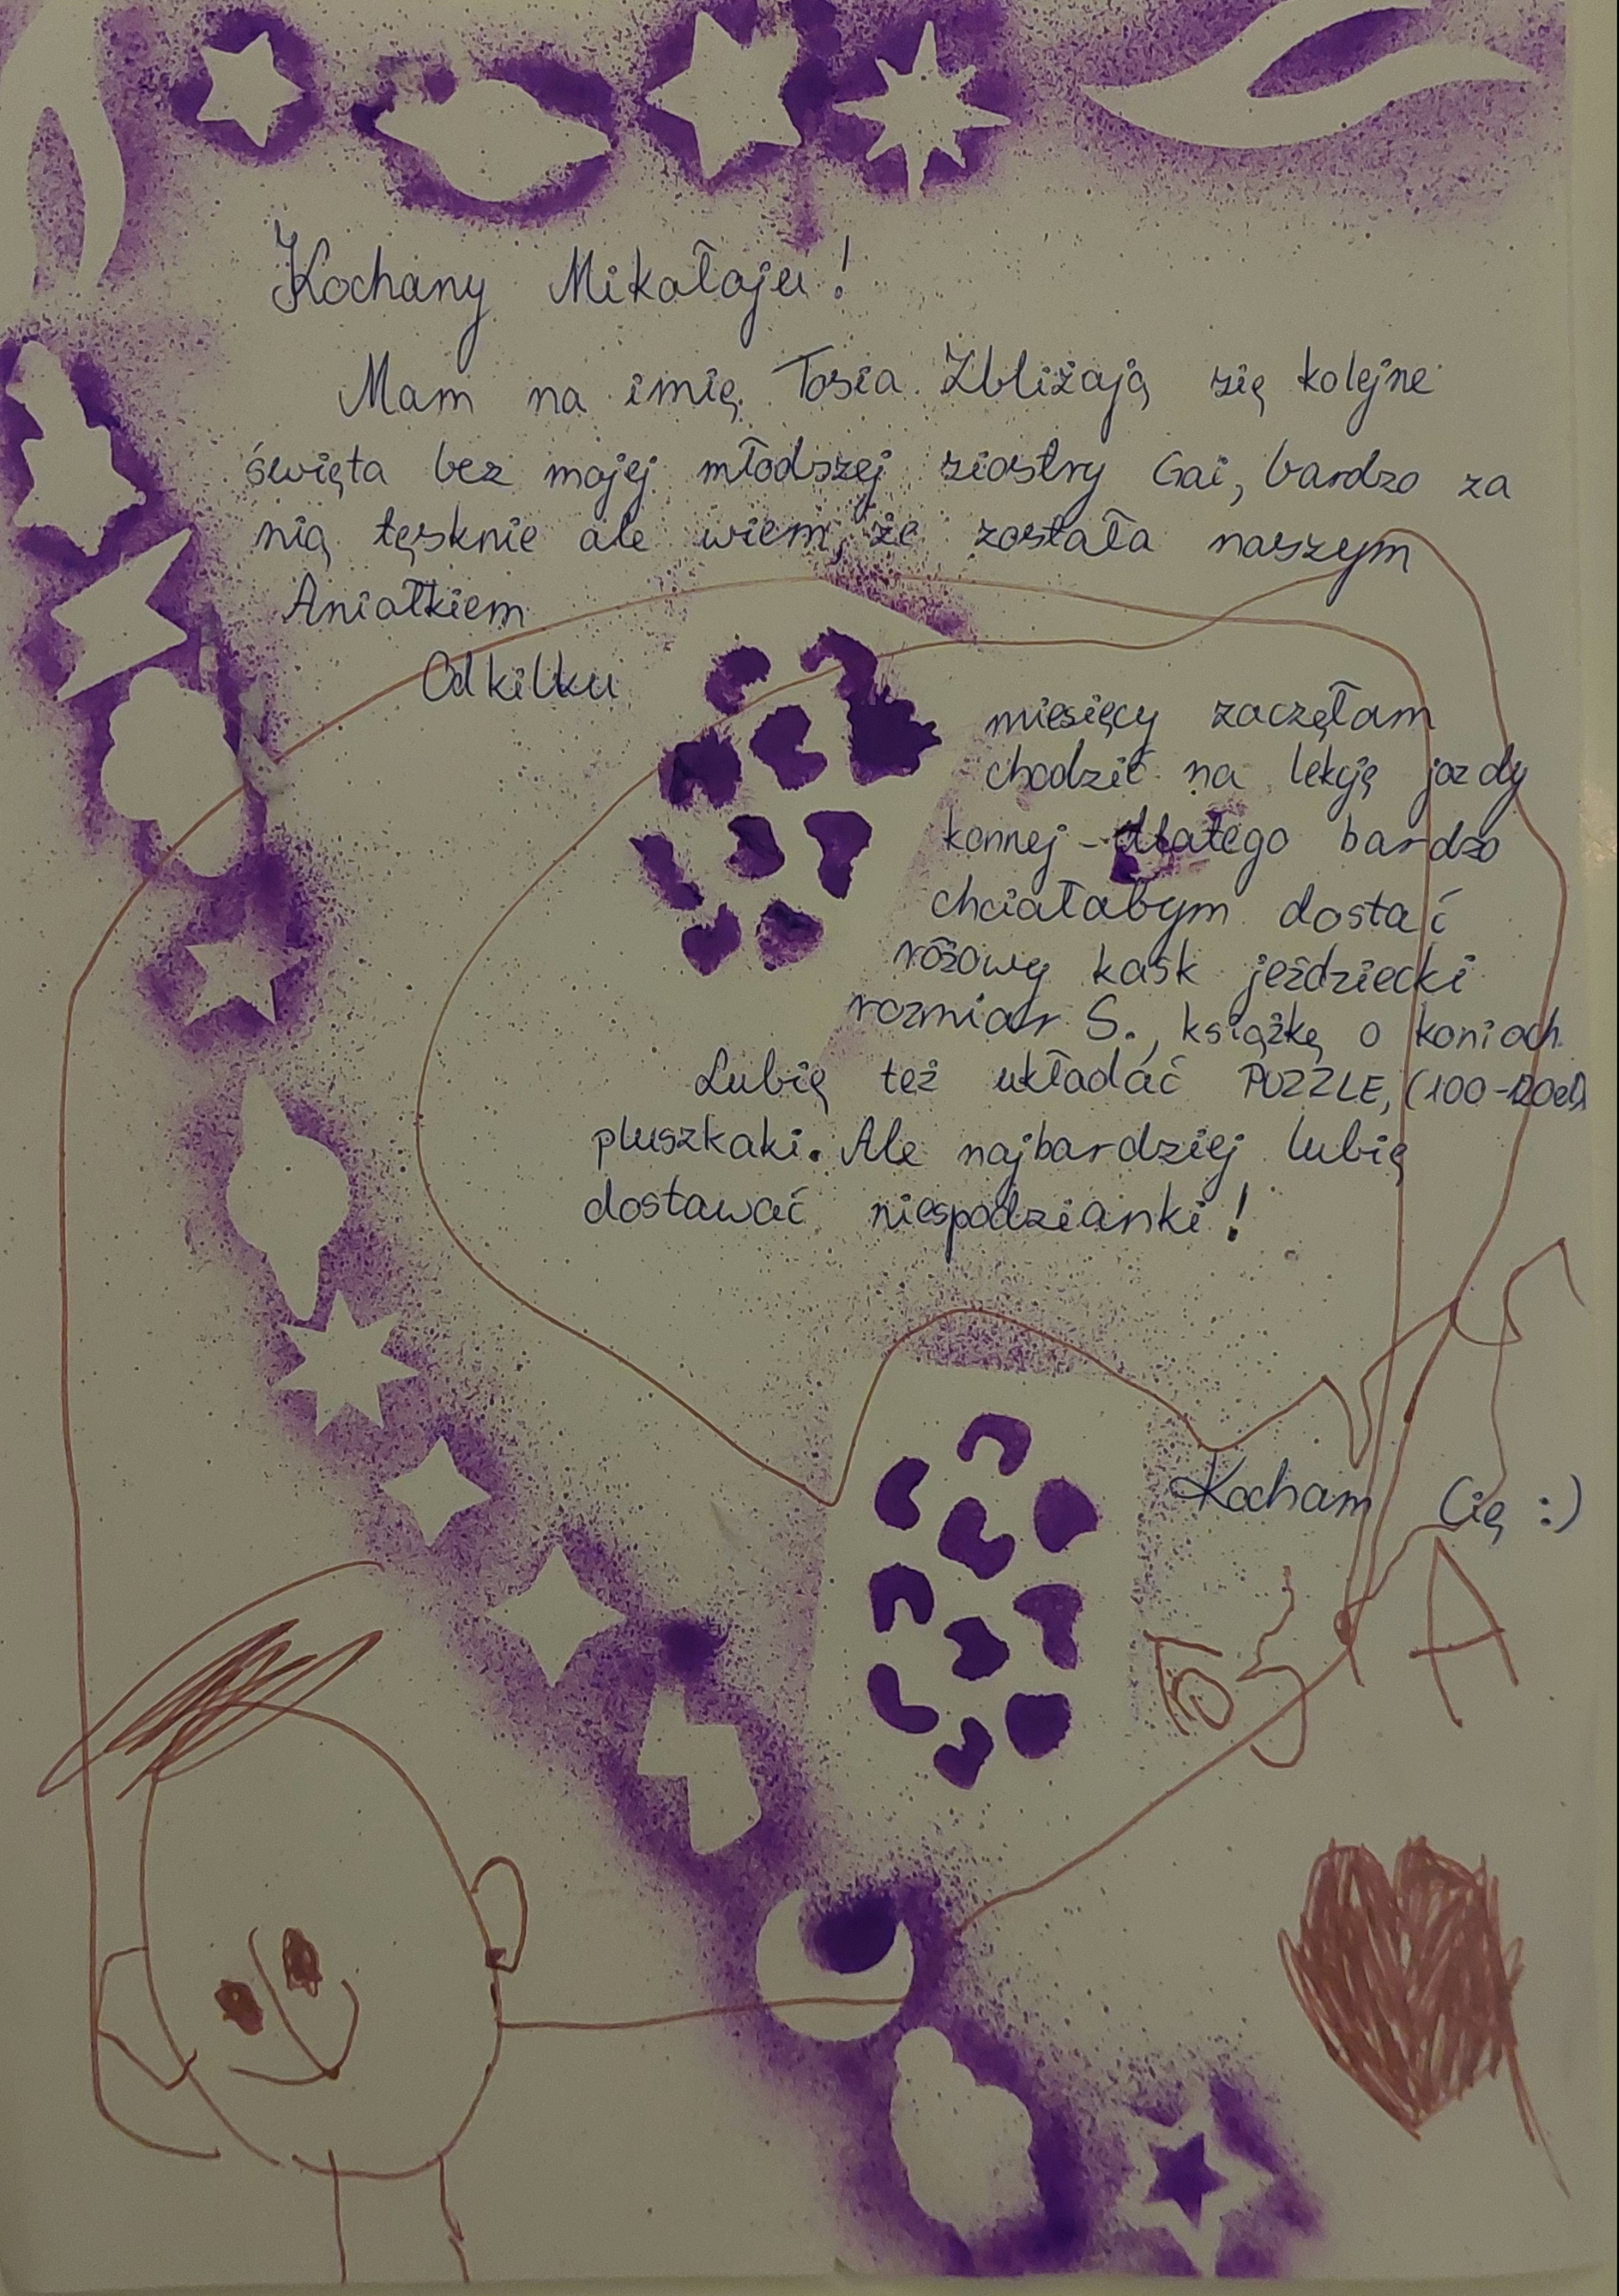 Kochany Mikołaju!
Mam na imię Tosia. Zbliżają się kolejne
święta bez mojej młodszej siostry Gai, bardzo za
nią tęsknie ale wiem, że została naszym
Aniołkiem
Od kilku
miesięcy zaczęłam
chodzić na lekcję jazdy
konnej - dlatego bardzo
chciałabym dostać
różowy kask jeździecki
rozmiar S., książkę o koniach.
Lubię też układać PUZZLE, (100-120el)
pluszkaki. Ale najbardziej lubię
dostawać niespodzianki!
Kocham Cię :)